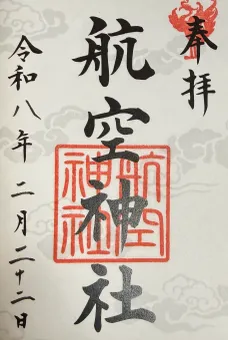 奉拝
航空神社
航空
神社
令和八年 二月二十二日